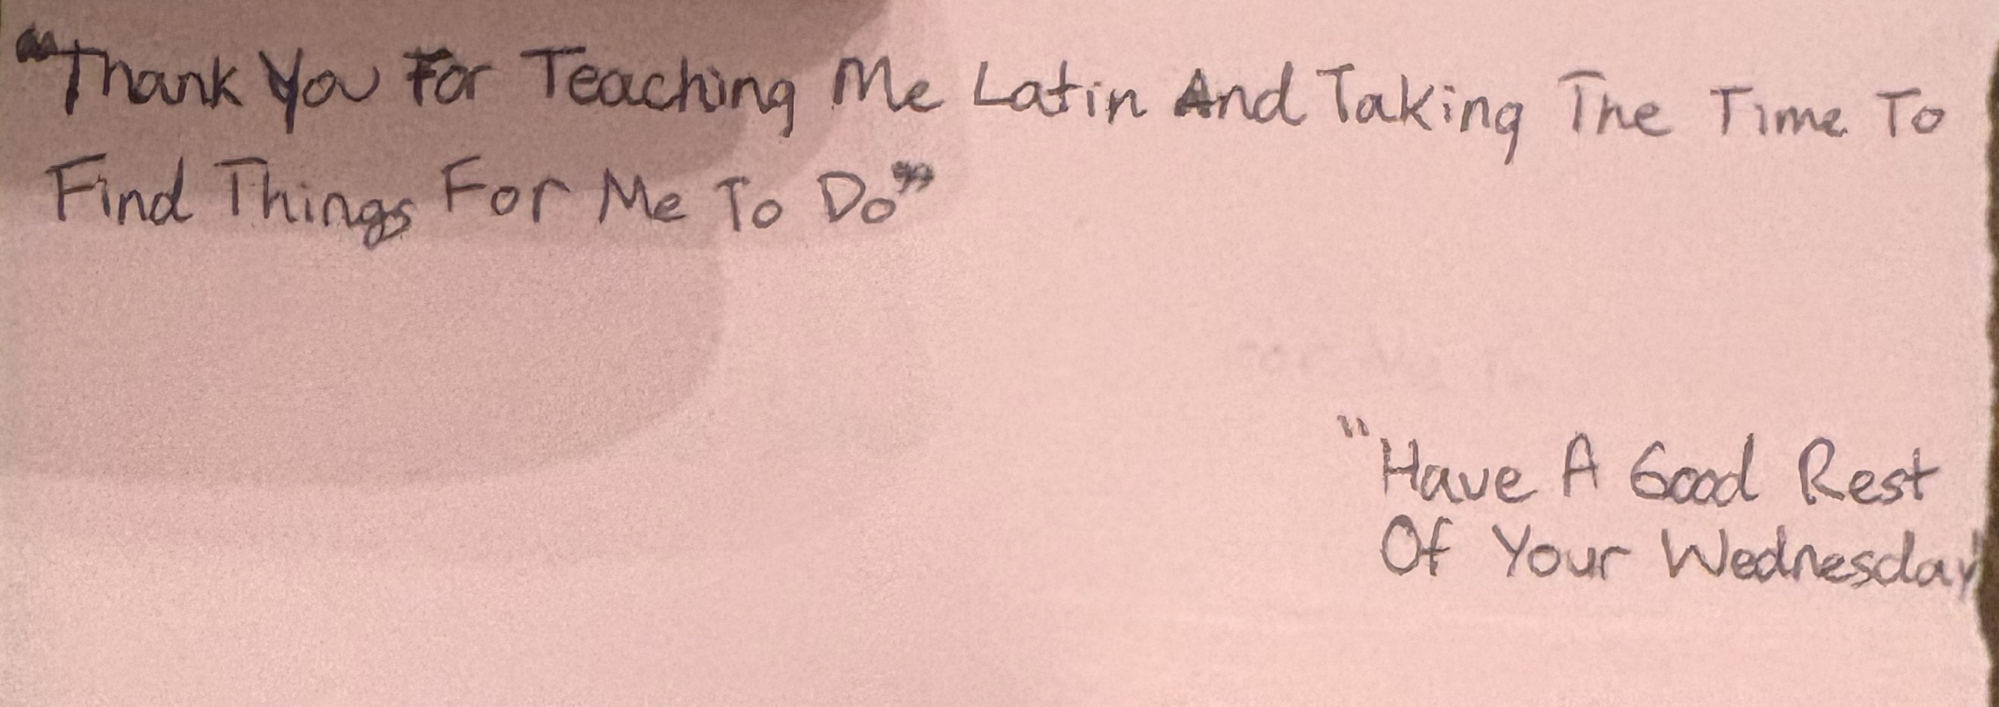 “Thank You For Teaching Me Latin And Taking The Time To
Find Things For Me To Do”
"Have A Good Rest
Of Your Wednesday